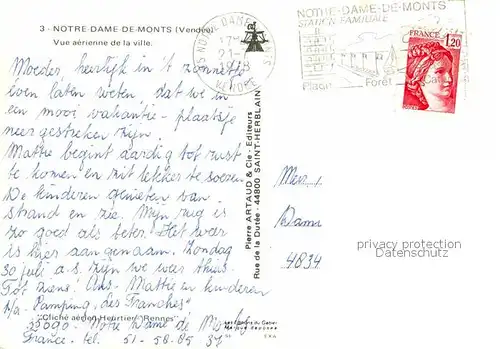 3 - NOTRE-DAME-DE-MONTS (Vendée)
Vue aérienne de la ville.
NOTRE DAME
17H
21-7
VENDEE
NOTRE-DAME-DE-MONTS
STATION FAMILIALE
Plage Forêt
FRANCE 1,20
Moeder heerlijk in 't zonnetje
even laten weten, dat we in
een mooi vakantie-plaatsje
neergestreken zijn.
Mattie begint aardig tot rust
te komen en zit lekker te
De kinderen genieten van
strand en zee. Mijn rug is
zo goed als beter. Het weer
is hier aangenaam. Zondag
30 juli a.s. zijn we weer thuis.
Tot ziens! Ans - Mattie en kinderen
p/a Camping "les Tranches"
85690 - Notre Dame de Monts
France. tel. 51-58-85-37
"Cliché aérien Heurtier" Rennes
Pierre ARTAUD & Cie - Editeurs
Rue de la Dutée - 44800 SAINT-HERBLAIN
Mevr.
Dame
4834
privacy protection
Datenschutz